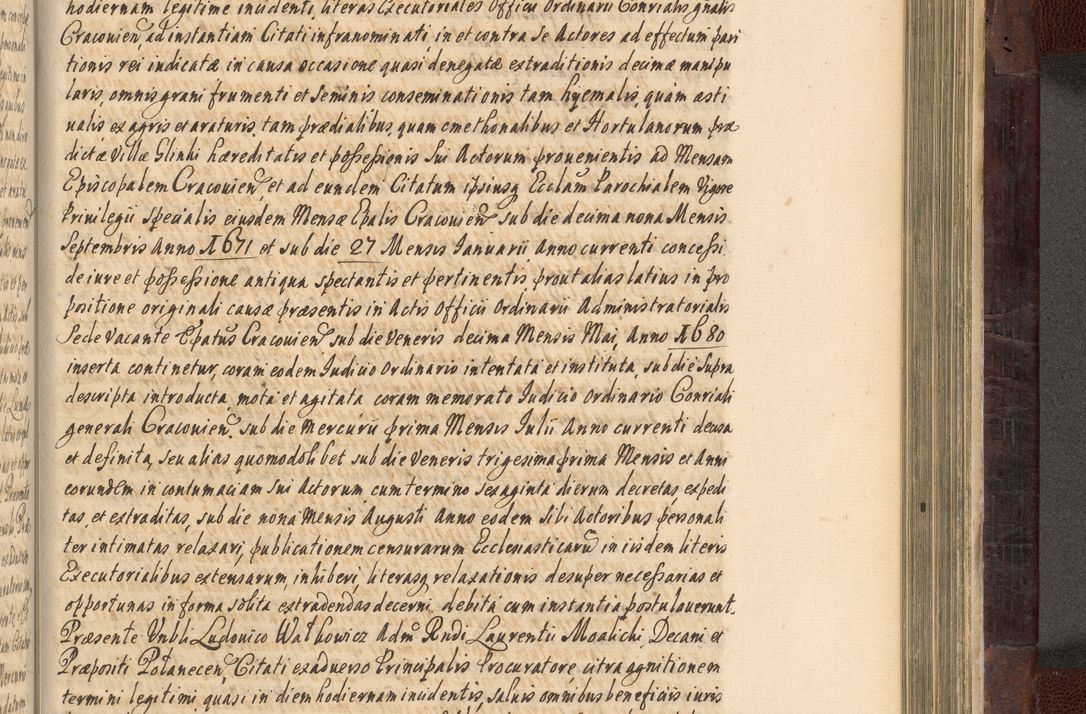 hodiernam legitime incidenti, literas Executoriales Officii Ordinarii Consialis gnalis
Cracouien, ad instantiam Citati infranominati in et contra se Actores ad effectum pari
tionis rei iudicatæ in causa occasione quasi denegatæ extraditionis decimæ manipu
laris, omnis grani frumenti et seminis conseminationis tam hyemalis, quam æsti
ualis ex agris et araturis, tam prædialibus, quam cmethonalibus et Hortulanorum præ
dictæ Villæ Glinki hæreditatis et possessionis sui Actorum prouenientis ad Mensam
Episcopalem Cracouien, et ad eundem Citatum ipsiusq Ecclam Parochialem Vigore
Priuilegii specialis eiusdem Mensæ Epalis Cracouien sub die decima nona Mensis
Septembris Anno 1671 et sub die 27 Mensis Ianuarii Anno currenti concessi
de iure et possessione antiqua spectantis et pertinentis, prout alias latius in pro
positione originali causæ præsentis in Actis Officii Ordinarii Administratorialis
Sede Vacante Epatus Cracouien sub die Veneris decima Mensis Mai, Anno 1680
inserta continetur, coram eodem Iudicio Ordinario intentata et instituta, sub die supra
descripta introducta, mota et agitata coram memorato Iudicio Ordinario Consiali
generali Cracouien. sub die Mercurii prima Mensis Iulii Anno currenti decisa
et definita, seu alias quomodolibet sub die Veneris trigesima prima Mensis et Anni
eorundem in contumaciam sui Actorum cum termino sexaginta dierum decretas, expedi
tas, et extraditas, sub die nona Mensis Augusti Anno eodem sibi Actoribus personali
ter intimatas relaxari, publicationem censurarum Ecclesiasticaru in iisdem literis
Executorialibus extensarum, inhiberi, literasq relaxationis desuper necessarias et
opportunas in forma solita extradendas decerni, debita cum instantia postulauerunt.
Præsente Vnbli Ludouico Wałkowicz Adm Rndi Laurentii Moalichi Decani et
Præpositi Połanecen, Citati ex aduerso Principalis Procuratore, citra agnitionem
termini legitimi, quasi in diem hodiernam incidentis, saluis omnibus beneficiis iuris